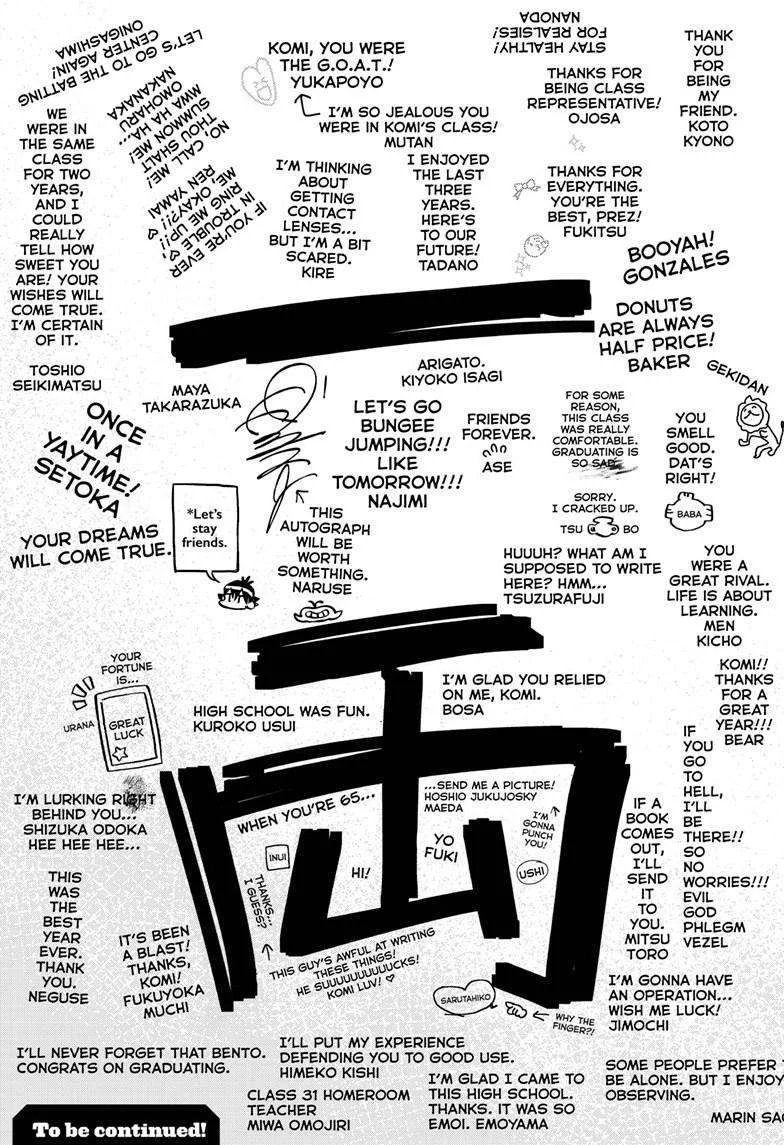 LET'S GO TO THE BATTING
CENTER AGAIN!
ONIGASHIMA
NO, CALL ME!
THOU SHALT
SUMMON ME!
MWA HA HA...
OMOHARU
NAKANAKA
KOMI, YOU WERE
THE G.O.A.T.!
YUKAPOYO
I'M SO JEALOUS YOU
WERE IN KOMI'S CLASS!
MUTAN
STAY HEALTHY!
FOR REALSIES!
NANODA
THANKS FOR
BEING CLASS
REPRESENTATIVE!
OJOSA
THANK
YOU
FOR
BEING
MY
FRIEND.
KOTO
KYONO
WE
WERE IN
THE SAME
CLASS
FOR TWO
YEARS,
AND I
COULD
REALLY
TELL HOW
SWEET YOU
ARE! YOUR
WISHES WILL
COME TRUE.
I'M CERTAIN
OF IT.
TOSHIO
SEIKIMATSU
IF YOU'RE EVER
IN TROUBLE,
RING ME UP!!
ME, OKAY?!
REN YAMAI
I'M THINKING
ABOUT
GETTING
CONTACT
LENSES...
BUT I'M A BIT
SCARED.
KIRE
I ENJOYED
THE LAST
THREE
YEARS.
HERE'S
TO OUR
FUTURE!
TADANO
THANKS FOR
EVERYTHING.
YOU'RE THE
BEST, PREZ!
FUKITSU
BOOYAH!
GONZALES
DONUTS
ARE ALWAYS
HALF PRICE!
BAKER
MAYA
TAKARAZUKA
ARIGATO.
KIYOKO ISAGI
GEKIDAN
ONCE
IN A
YAYTIME!
SETOKA
LET'S GO
BUNGEE
JUMPING!!!
LIKE
TOMORROW!!!
NAJIMI
FRIENDS
FOREVER.
ASE
FOR SOME
REASON,
THIS CLASS
WAS REALLY
COMFORTABLE.
GRADUATING IS
SO SAD.
SORRY.
I CRACKED UP.
TSU BO
YOU
SMELL
GOOD.
DAT'S
RIGHT!
BABA
YOUR DREAMS
WILL COME TRUE.
*Let's
stay
friends.
THIS
AUTOGRAPH
WILL BE
WORTH
SOMETHING.
NARUSE
HUUUH? WHAT AM I
SUPPOSED TO WRITE
HERE? HMM...
TSUZURAFUJI
YOU
WERE A
GREAT RIVAL.
LIFE IS ABOUT
LEARNING.
MEN
KICHO
YOUR
FORTUNE
IS...
GREAT
LUCK
URANA
HIGH SCHOOL WAS FUN.
KUROKO USUI
I'M GLAD YOU RELIED
ON ME, KOMI.
BOSA
KOMI!!
THANKS
FOR A
GREAT
YEAR!!!
BEAR
IF
YOU
GO
TO
HELL,
I'LL
BE
THERE!!
SO
NO
WORRIES!!!
EVIL
GOD
PHLEGM
VEZEL
I'M LURKING RIGHT
BEHIND YOU...
SHIZUKA ODOKA
HEE HEE HEE...
WHEN YOU'RE 65...
...SEND ME A PICTURE!
HOSHIO JUKUJOSKY
MAEDA
INUI
HI!
YO
FUKI
I'M
GONNA
PUNCH
YOU!
USHI
IF A
BOOK
COMES
OUT,
I'LL
SEND
IT
TO
YOU.
MITSU
TORO
THIS
WAS
THE
BEST
YEAR
EVER.
THANK
YOU.
NEGUSE
IT'S BEEN
A BLAST!
THANKS,
KOMI!
FUKUYOKA
MUCHI
THANKS...
I GUESS?
THIS GUY'S AWFUL AT WRITING
THESE THINGS!
HE SUUUUUUUUUCKS!
KOMI LUV! ♡
SARUTAHIKO
WHY THE
FINGER?!
I'M GONNA HAVE
AN OPERATION...
WISH ME LUCK!
JIMOCHI
I'LL NEVER FORGET THAT BENTO.
CONGRATS ON GRADUATING.
I'LL PUT MY EXPERIENCE
DEFENDING YOU TO GOOD USE.
HIMEKO KISHI
CLASS 31 HOMEROOM
TEACHER
MIWA OMOJIRI
I'M GLAD I CAME TO
THIS HIGH SCHOOL.
THANKS. IT WAS SO
EMOI. EMOYAMA
SOME PEOPLE PREFER
BE ALONE. BUT I ENJOY
OBSERVING.
MARIN
To be continued!